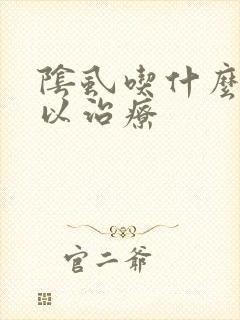 陰虱喫什麼
以治療
官二爺